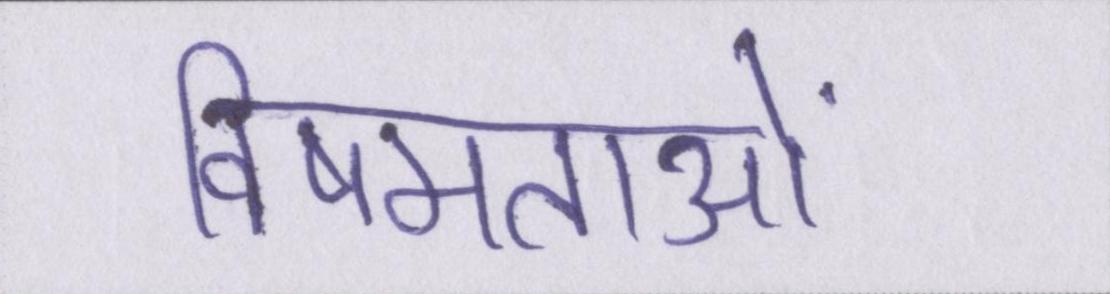 विषमताओं